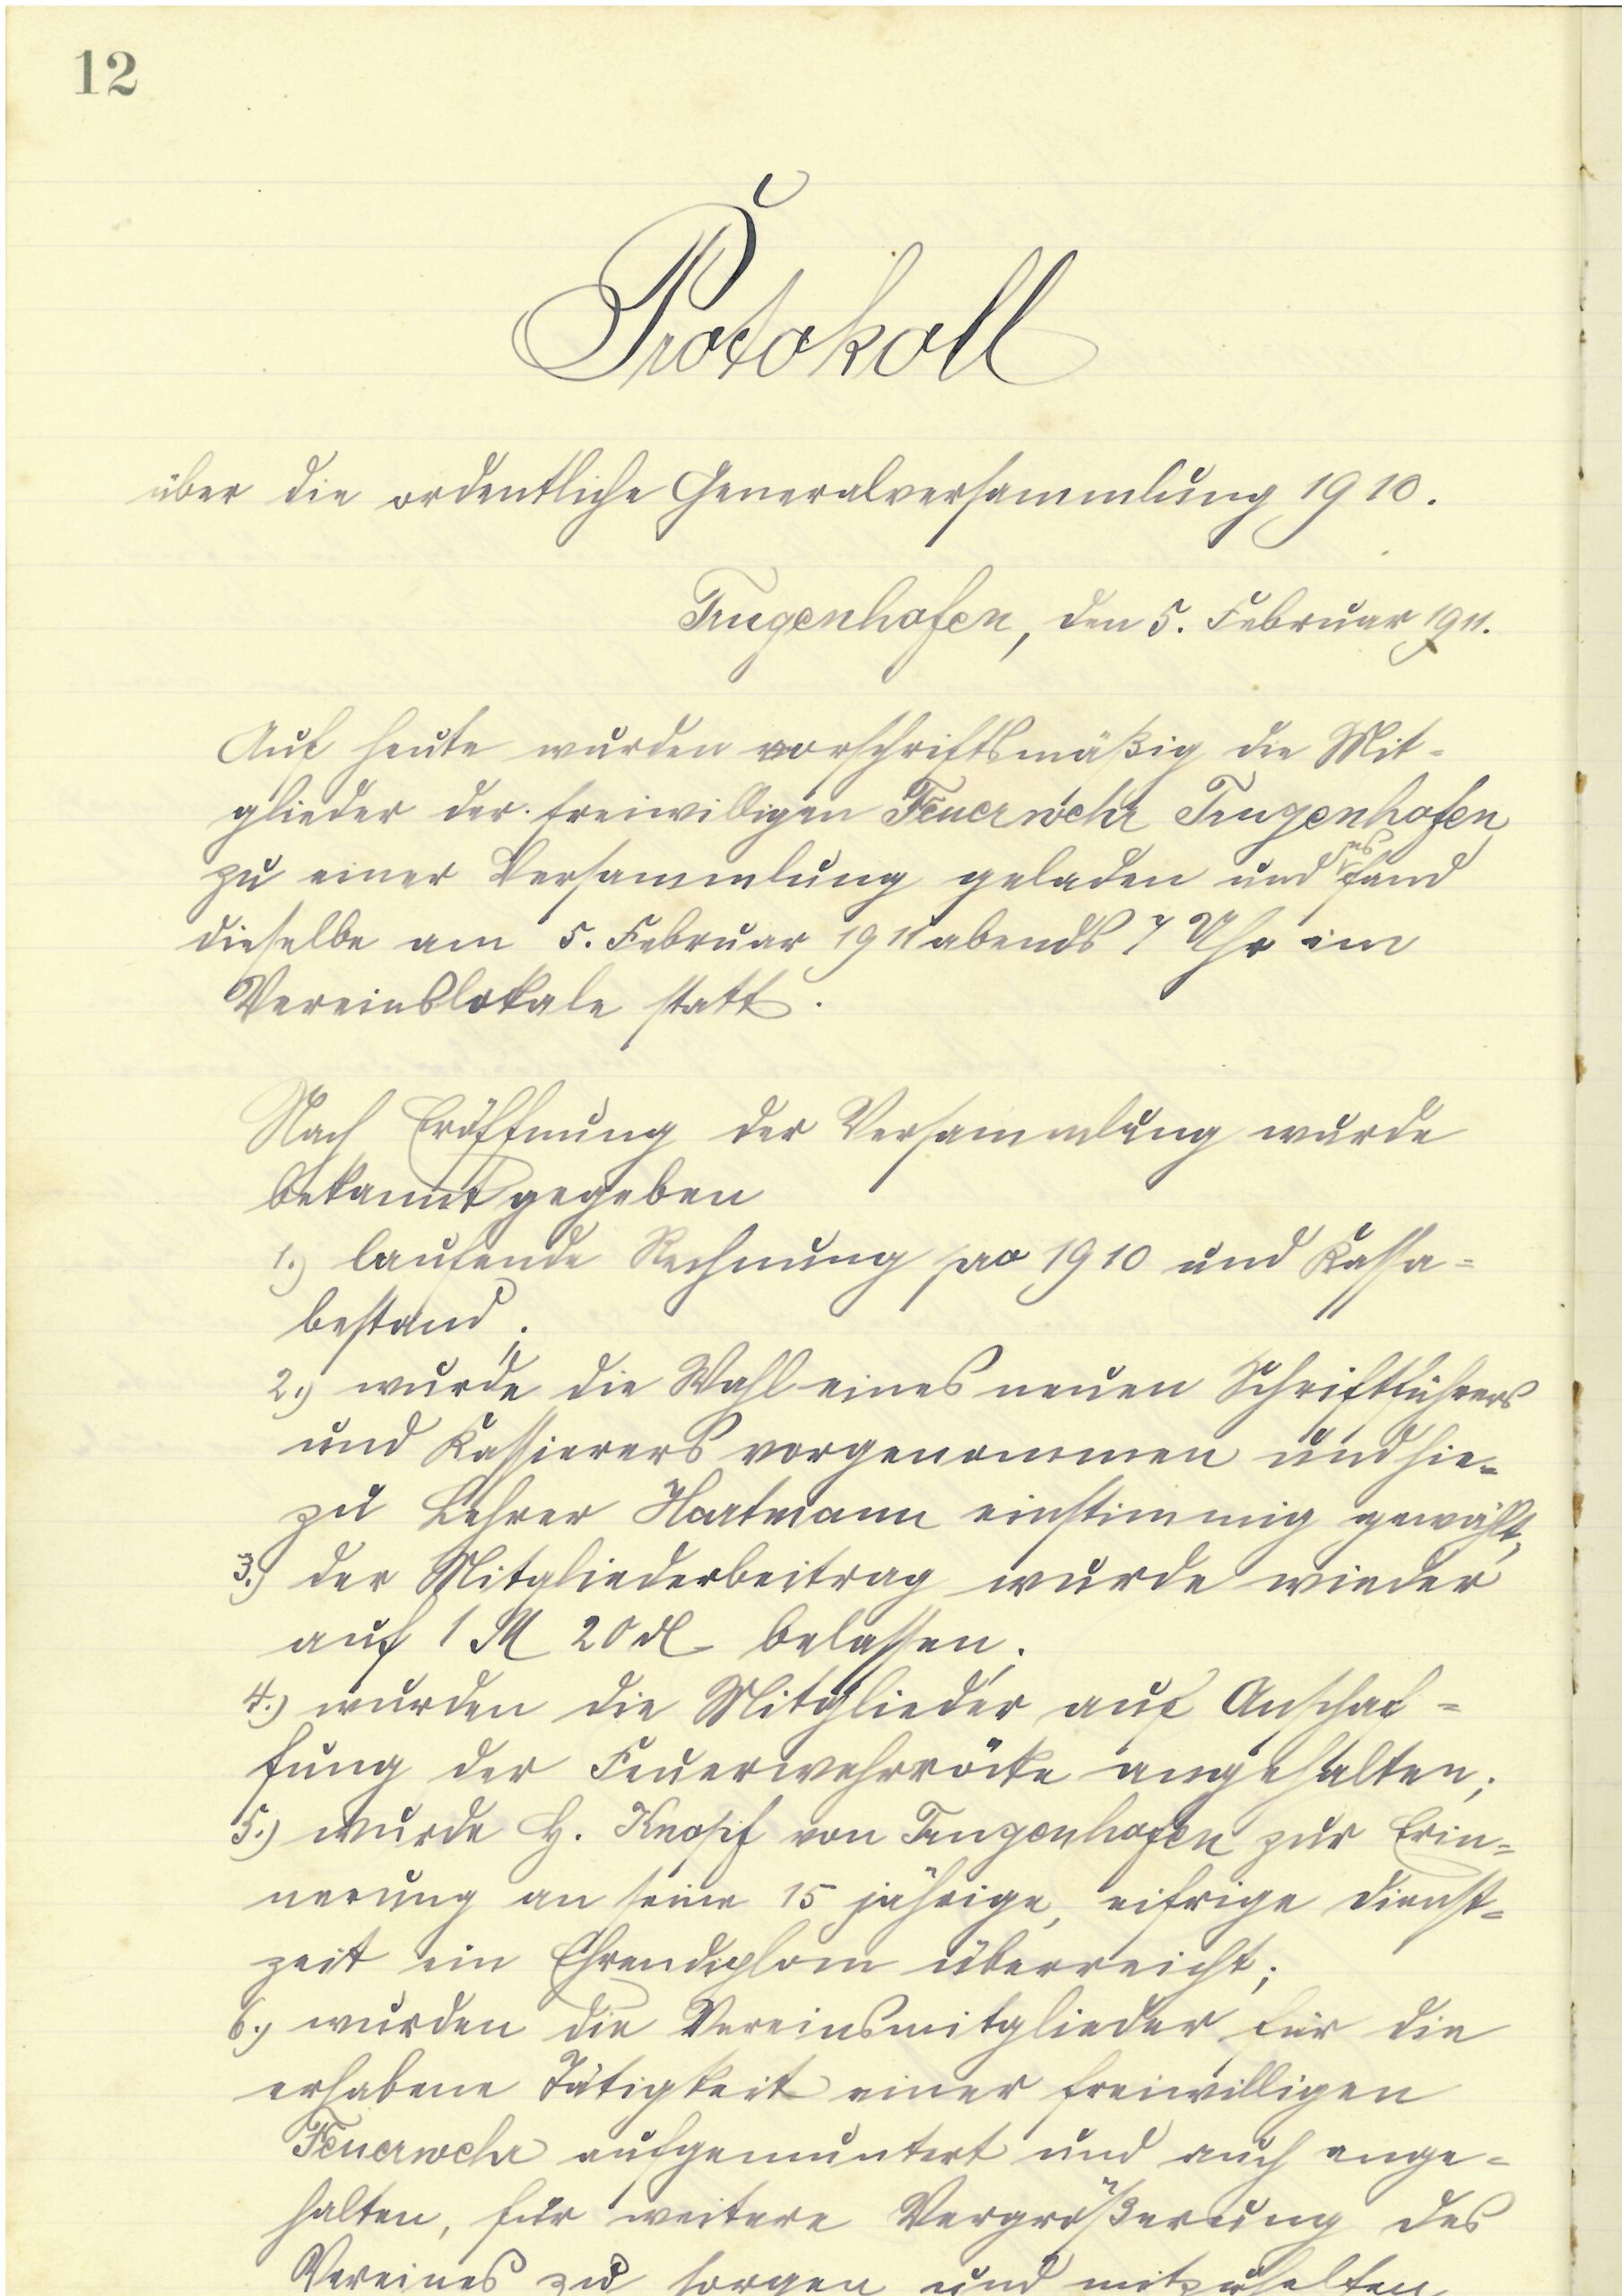 12
Protokoll
über die ordentliche Generalversammlung 1910.
Trugenhofen, den 5. Februar 1911.
Auf heute wurden vorschriftsmäßig die Mit-
glieder der freiwilligen Feuerwehr Trugenhofen
zu einer Versammlung geladen und es fand
dieselbe am 5. Februar 1911 abends 7 Uhr im
Vereinslokale statt.
Nach Eröffnung der Versammlung wurde
bekannt gegeben
1.) laufende Rechnung pro 1910 und Kassa-
bestand;
2.) wurde die Wahl eines neuen Schriftführers
und Kassierers vorgenommen und hie-
zu Lehrer Hartmann einstimmig gewählt,
3.) der Mitgliederbeitrag wurde wieder
auf 1 M 20 ₰ belassen.
4.) wurden die Mitglieder auf Anschaf-
fung der Feuerwehrröcke angehalten;
5.) wurde H. Knopf von Trugenhofen zur Erin-
nerung an seine 15 jährige, eifrige Dienst-
zeit ein Ehrendiplom überreicht;
6.) wurden die Vereinsmitglieder für die
erhabene Tätigkeit einer freiwilligen
Feuerwehr aufgemuntert und auch ange-
halten, für weitere Vergrößerung des
Vereines zu sorgen und mitzuhelfen